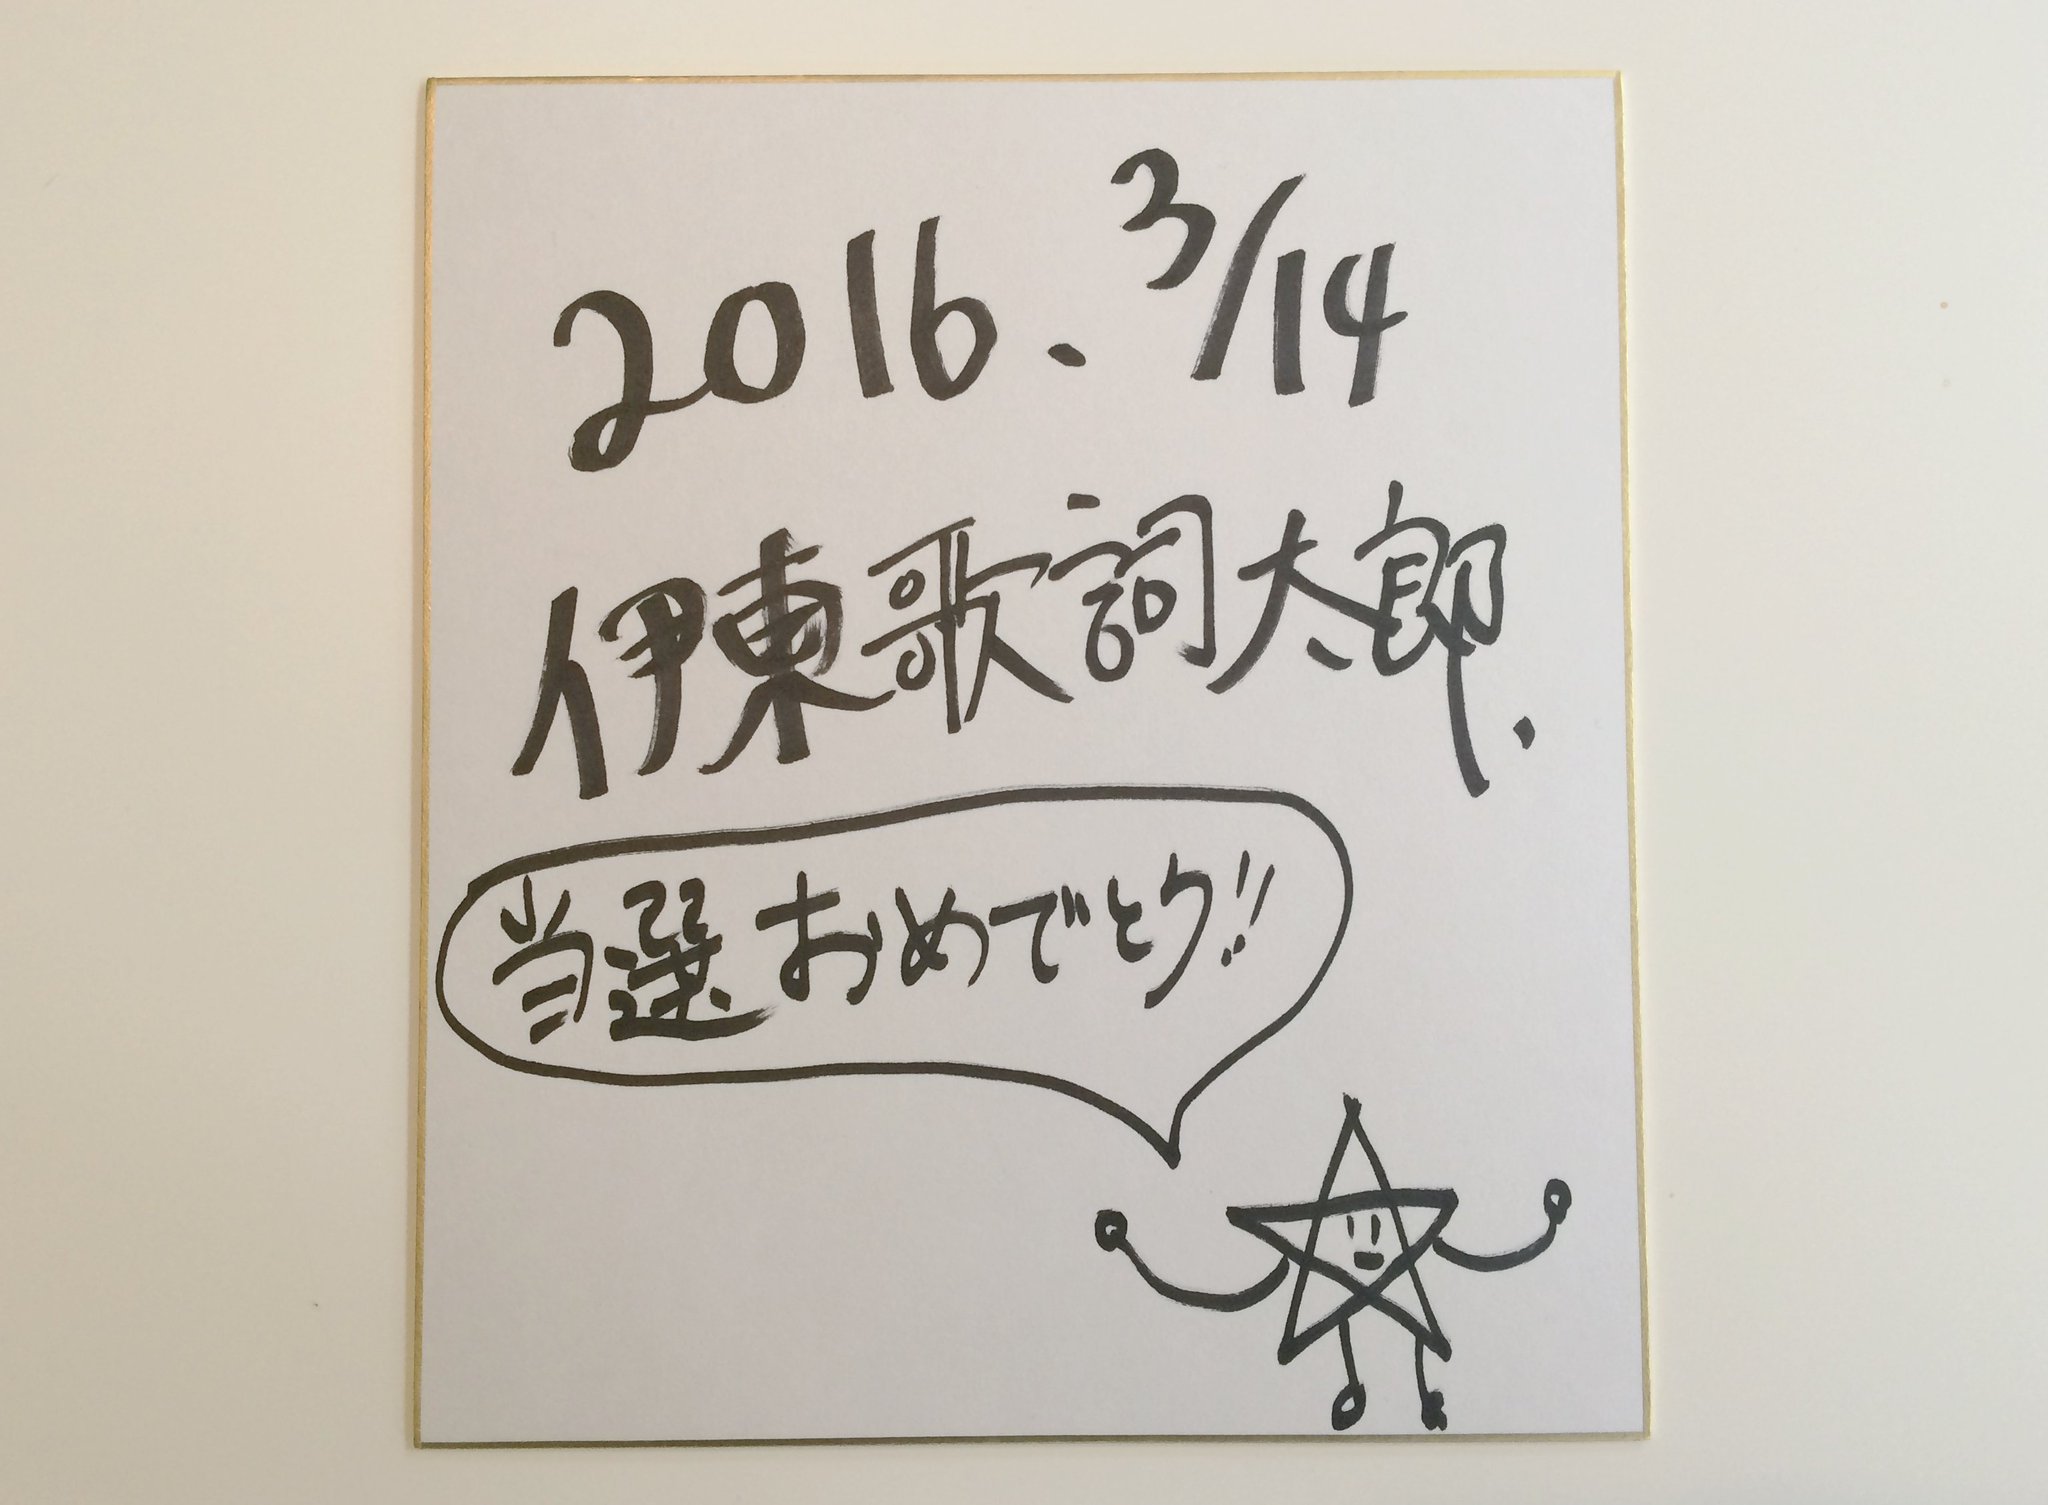 2016. 3/14
伊東歌詞太郎.
当選おめでとう!!